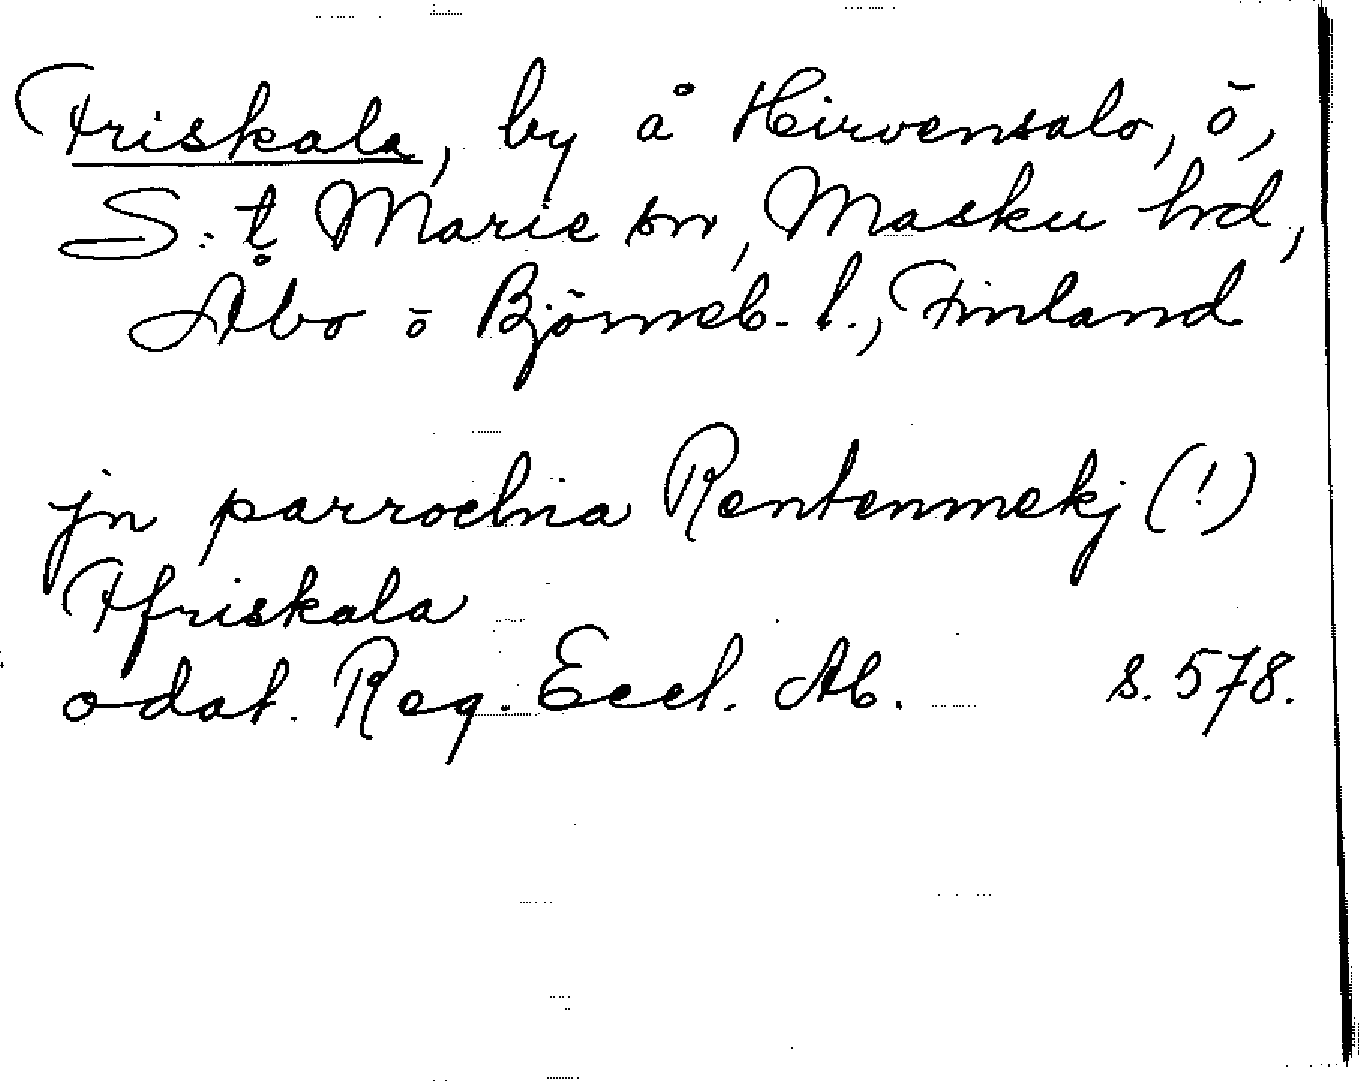 Friskala, by å Hirvensalo, ö,
S:t Marie sn, Masku hrd,
Åbo o Björneb. l., Finland
jn parrochia Rentenmekj (!)
Ffriskala
odat. Reg. Eccl. Ab. s. 578.